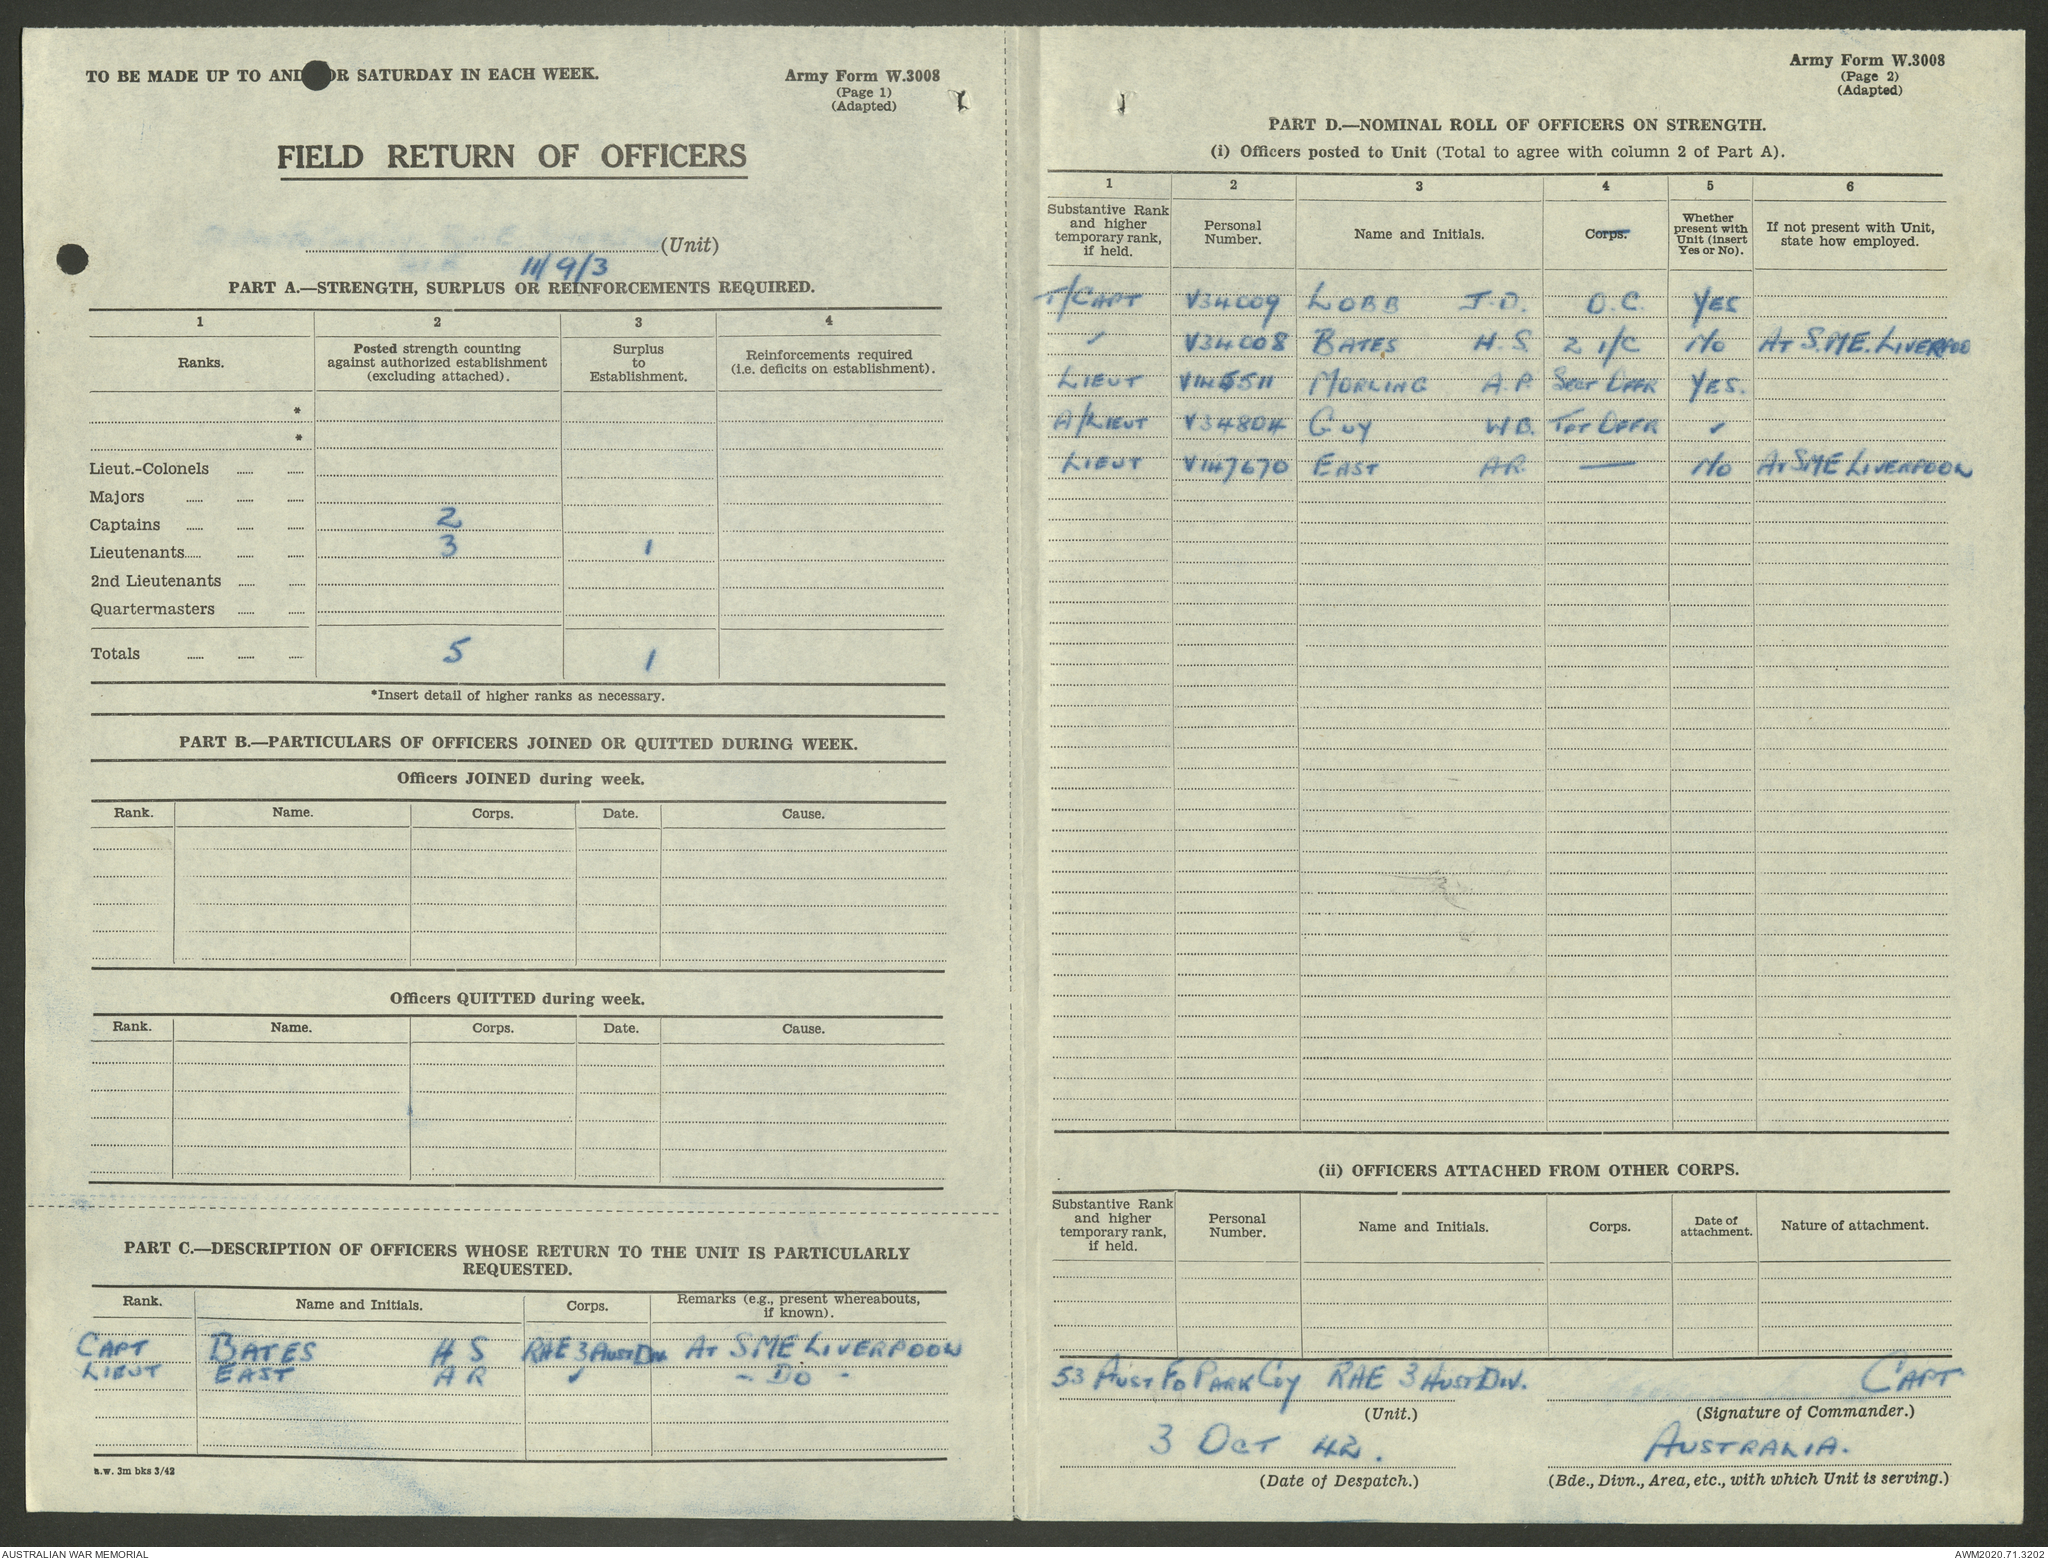 TO BE MADE UP TO AND OR SATURDAY IN EACH WEEK.
Army Form W.3008
(Page 1)
(Adapted)
FIELD RETURN OF OFFICERS
(Unit)
11/9/3
PART A.—STRENGTH, SURPLUS OR REINFORCEMENTS REQUIRED.
1 2 3 4
Ranks. Posted strength counting against authorized establishment (excluding attached). Surplus to Establishment. Reinforcements required (i.e. deficits on establishment).
*
*
Lieut.-Colonels
Majors
Captains 2
Lieutenants 3 1
2nd Lieutenants
Quartermasters
Totals 5 1
*Insert detail of higher ranks as necessary.
PART B.—PARTICULARS OF OFFICERS JOINED OR QUITTED DURING WEEK.
Officers JOINED during week.
Rank. Name. Corps. Date. Cause.
Officers QUITTED during week.
Rank. Name. Corps. Date. Cause.
PART C.—DESCRIPTION OF OFFICERS WHOSE RETURN TO THE UNIT IS PARTICULARLY
REQUESTED.
Rank. Name and Initials. Corps. Remarks (e.g., present whereabouts, if known).
CAPT BATES H S RAE 3 AUST DIV AT SME LIVERPOOL
LIEUT EAST A R ✓ - DO -
a.w. 3m bks 3/42
Army Form W.3008
(Page 2)
(Adapted)
PART D.—NOMINAL ROLL OF OFFICERS ON STRENGTH.
(i) Officers posted to Unit (Total to agree with column 2 of Part A).
1 2 3 4 5 6
Substantive Rank and higher temporary rank, if held. Personal Number. Name and Initials. Corps. Whether present with Unit (insert Yes or No). If not present with Unit, state how employed.
T/CAPT V34009 LOBB J.D. O.C. YES
✓ V34008 BATES H.S. 2 I/C NO AT S.M.E. LIVERPOO
LIEUT V145511 MORLING A.P. SECT OFFR YES.
A/LIEUT V34804 GUY W.B. TPT OFFR ✓
LIEUT V147670 EAST AR. — NO AT SME LIVERPOOL
(ii) OFFICERS ATTACHED FROM OTHER CORPS.
Substantive Rank and higher temporary rank, if held. Personal Number. Name and Initials. Corps. Date of attachment. Nature of attachment.
53 AUST FD PARK COY RAE 3 AUST DIV. CAPT
(Unit.) (Signature of Commander.)
3 OCT 42. AUSTRALIA.
(Date of Despatch.) (Bde., Divn., Area, etc., with which Unit is serving.)
AUSTRALIAN WAR MEMORIAL
AWM2020.71.3202